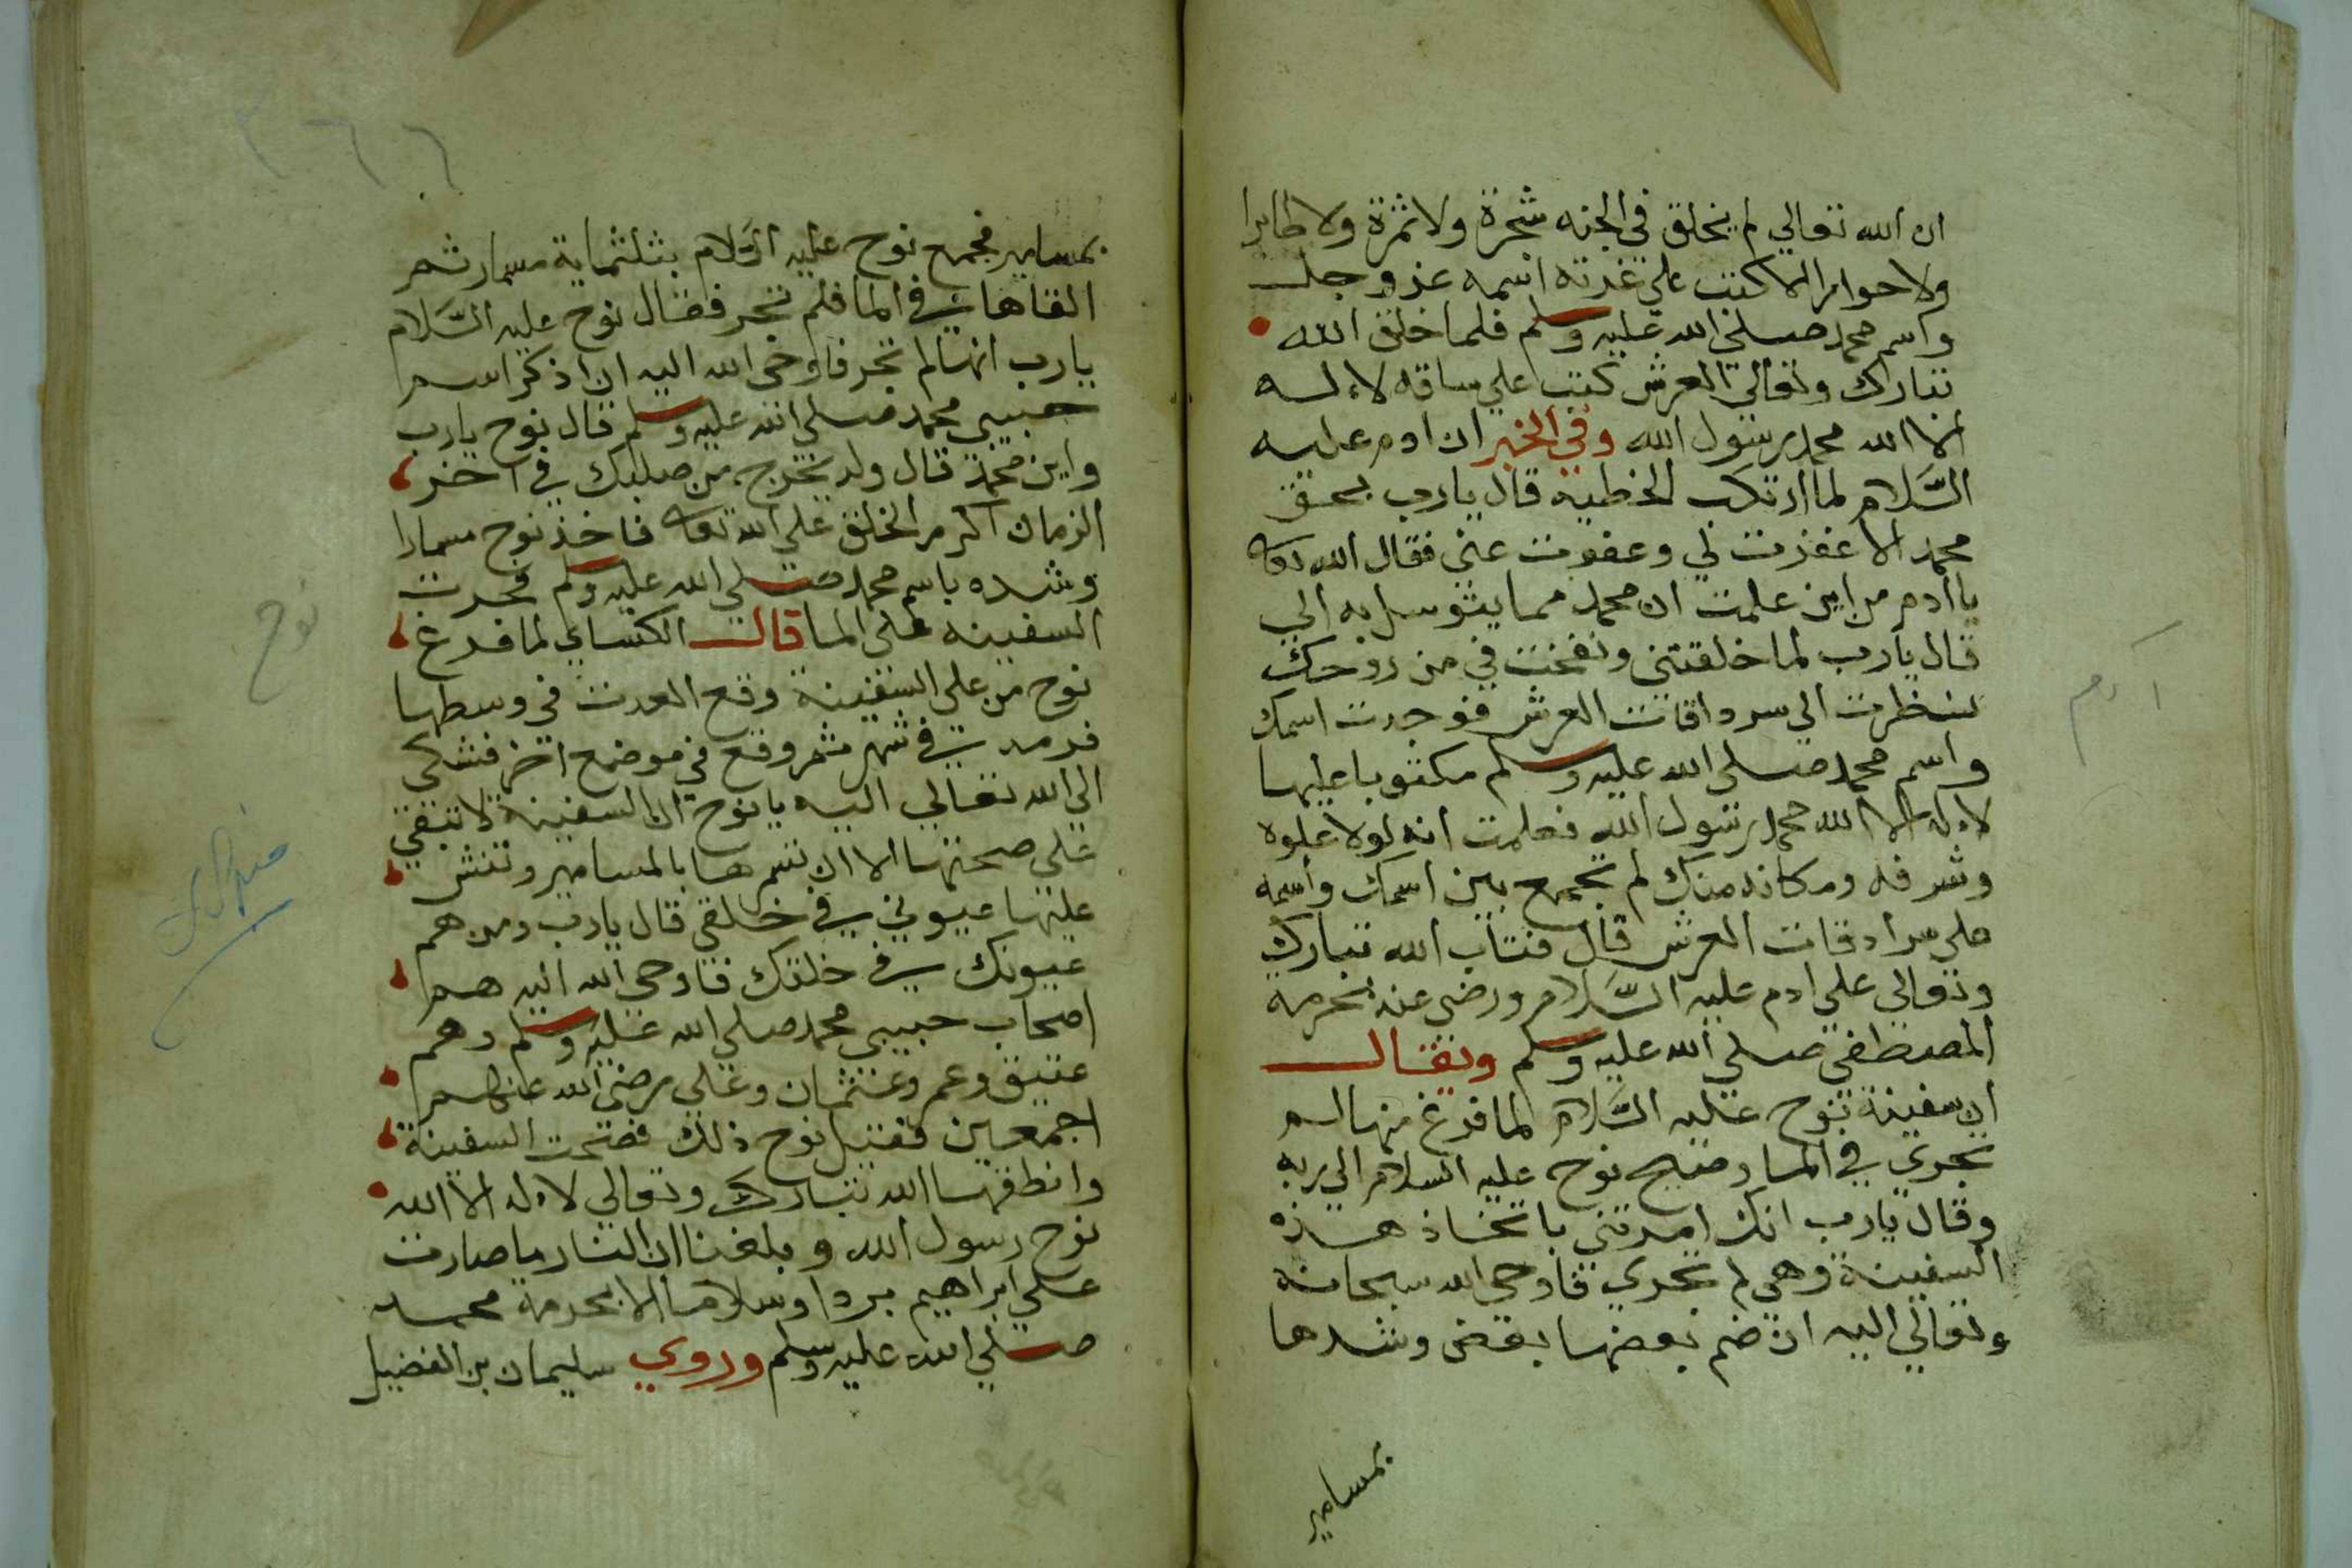 ان الله تعالي لم يخلق في الجنه شجرة ولا ثمرة ولا طايرا
ولا حورا الا كتب علي غرته اسمه عز وجل
واسم محمد صلي الله عليه وسلم فلما خلق الله
تبارك وتعالي العرش كتب علي ساقه لا اله
الا الله محمد رسول الله وفي الخبر ان ادم عليه
السَّلام لما ارتكب الخطية قال يا رب بحق
محمد الا غفرت لي وعفوت عني فقال الله تعا
يا ادم من اين علمت ان محمد مما يتوسل به الي
قال يا رب لما خلقتني ونفخت في من روحك
نظرت الي سرداقات العرش فوجدت اسمك
واسم محمد صلي الله عليه وسلم مكتوبا عليها
لا اله الا الله محمد رسول الله فعلمت انه لولا علوه
وشرفه ومكانه منك لم تجمع بين اسمك واسمه
علي سرادقات العرش قال فتاب الله تبارك
وتعالي علي ادم عليه السَّلام ورضي عنه بحرمة
المصطفي صلي الله عليه وسلم ويقال
ان سفينة نوح عليه السَّلام لما فرغ منها لم
تجري في الما وضج نوح عليه السلام الي ربه
وقال يا رب انك امرتني باتخاذ هذه
السفينة وهي لم تجري فاوحي الله سبحانه
وتعالي اليه ان ضم بعضها بعض وشدها
بمسامير
ادم
بمسامير فجمع نوح عليه السَّلام بثلثماية مسمار ثم
القاها في الما فلم تجر فقال نوح عليه السَّلام
يا رب انها لم تجر فاوحي الله اليه ان اذكر اسم
حبيبي محمد صلي الله عليه وسلم قال نوح يا رب
واين محمد قال ولد يخرج من صلبك في اخر
الزمان اكرم الخلق علي الله تعا فاخذ نوح مسمارا
وشده باسم محمد صلي الله عليه وسلم فجرت
السفينه علي الما قال الكساي لما فرغ
نوح من علي السفينة وقع العدث في وسطها
في شهر ثم وقع في موضع اخر فشكي
الي الله تعالي اليه يا نوح ان السفينة لا تبقي
علي صحتها الا ان تسمرها بالمسامير وتنقش
عليها عيوني في خلقي قال يا رب ومن هم
عيونك في خلقك فاوحي الله اليه هم
اصحاب حبيبي محمد صلي الله عليه وسلم وهم
عتيق وعمر وعثمان وعلي رضي الله عنهم
اجمعين ففعل نوح ذلك فصحت السفينة
وانطقها الله تبارك وتعالي لا اله الا الله
نوح رسول الله وبلغنا ان النار ما صارت
علي ابراهيم بردا وسلاما الا بحرمة محمد
صلي الله عليه وسلم وروي سليمان بن الفضيل
نوح
٣٦٦